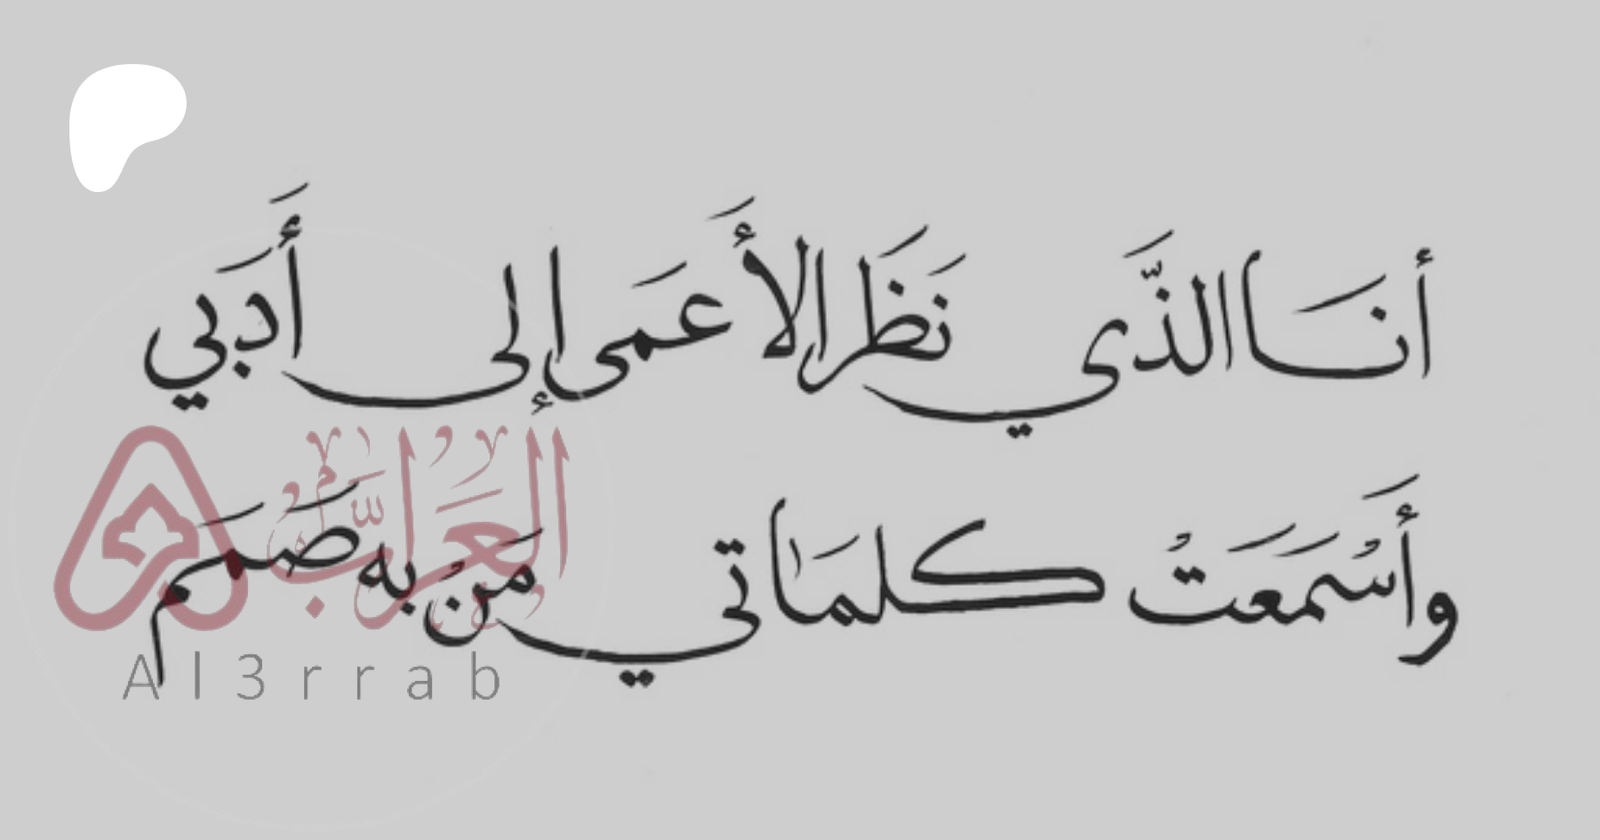 أنَا الذَّي نَظَرَ الأَعمَى إلى أَدَبي
وأَسْمَعَتْ كلمَاتي مَنْ بهِ صَمَم
العَرَّاب
Al3rrab